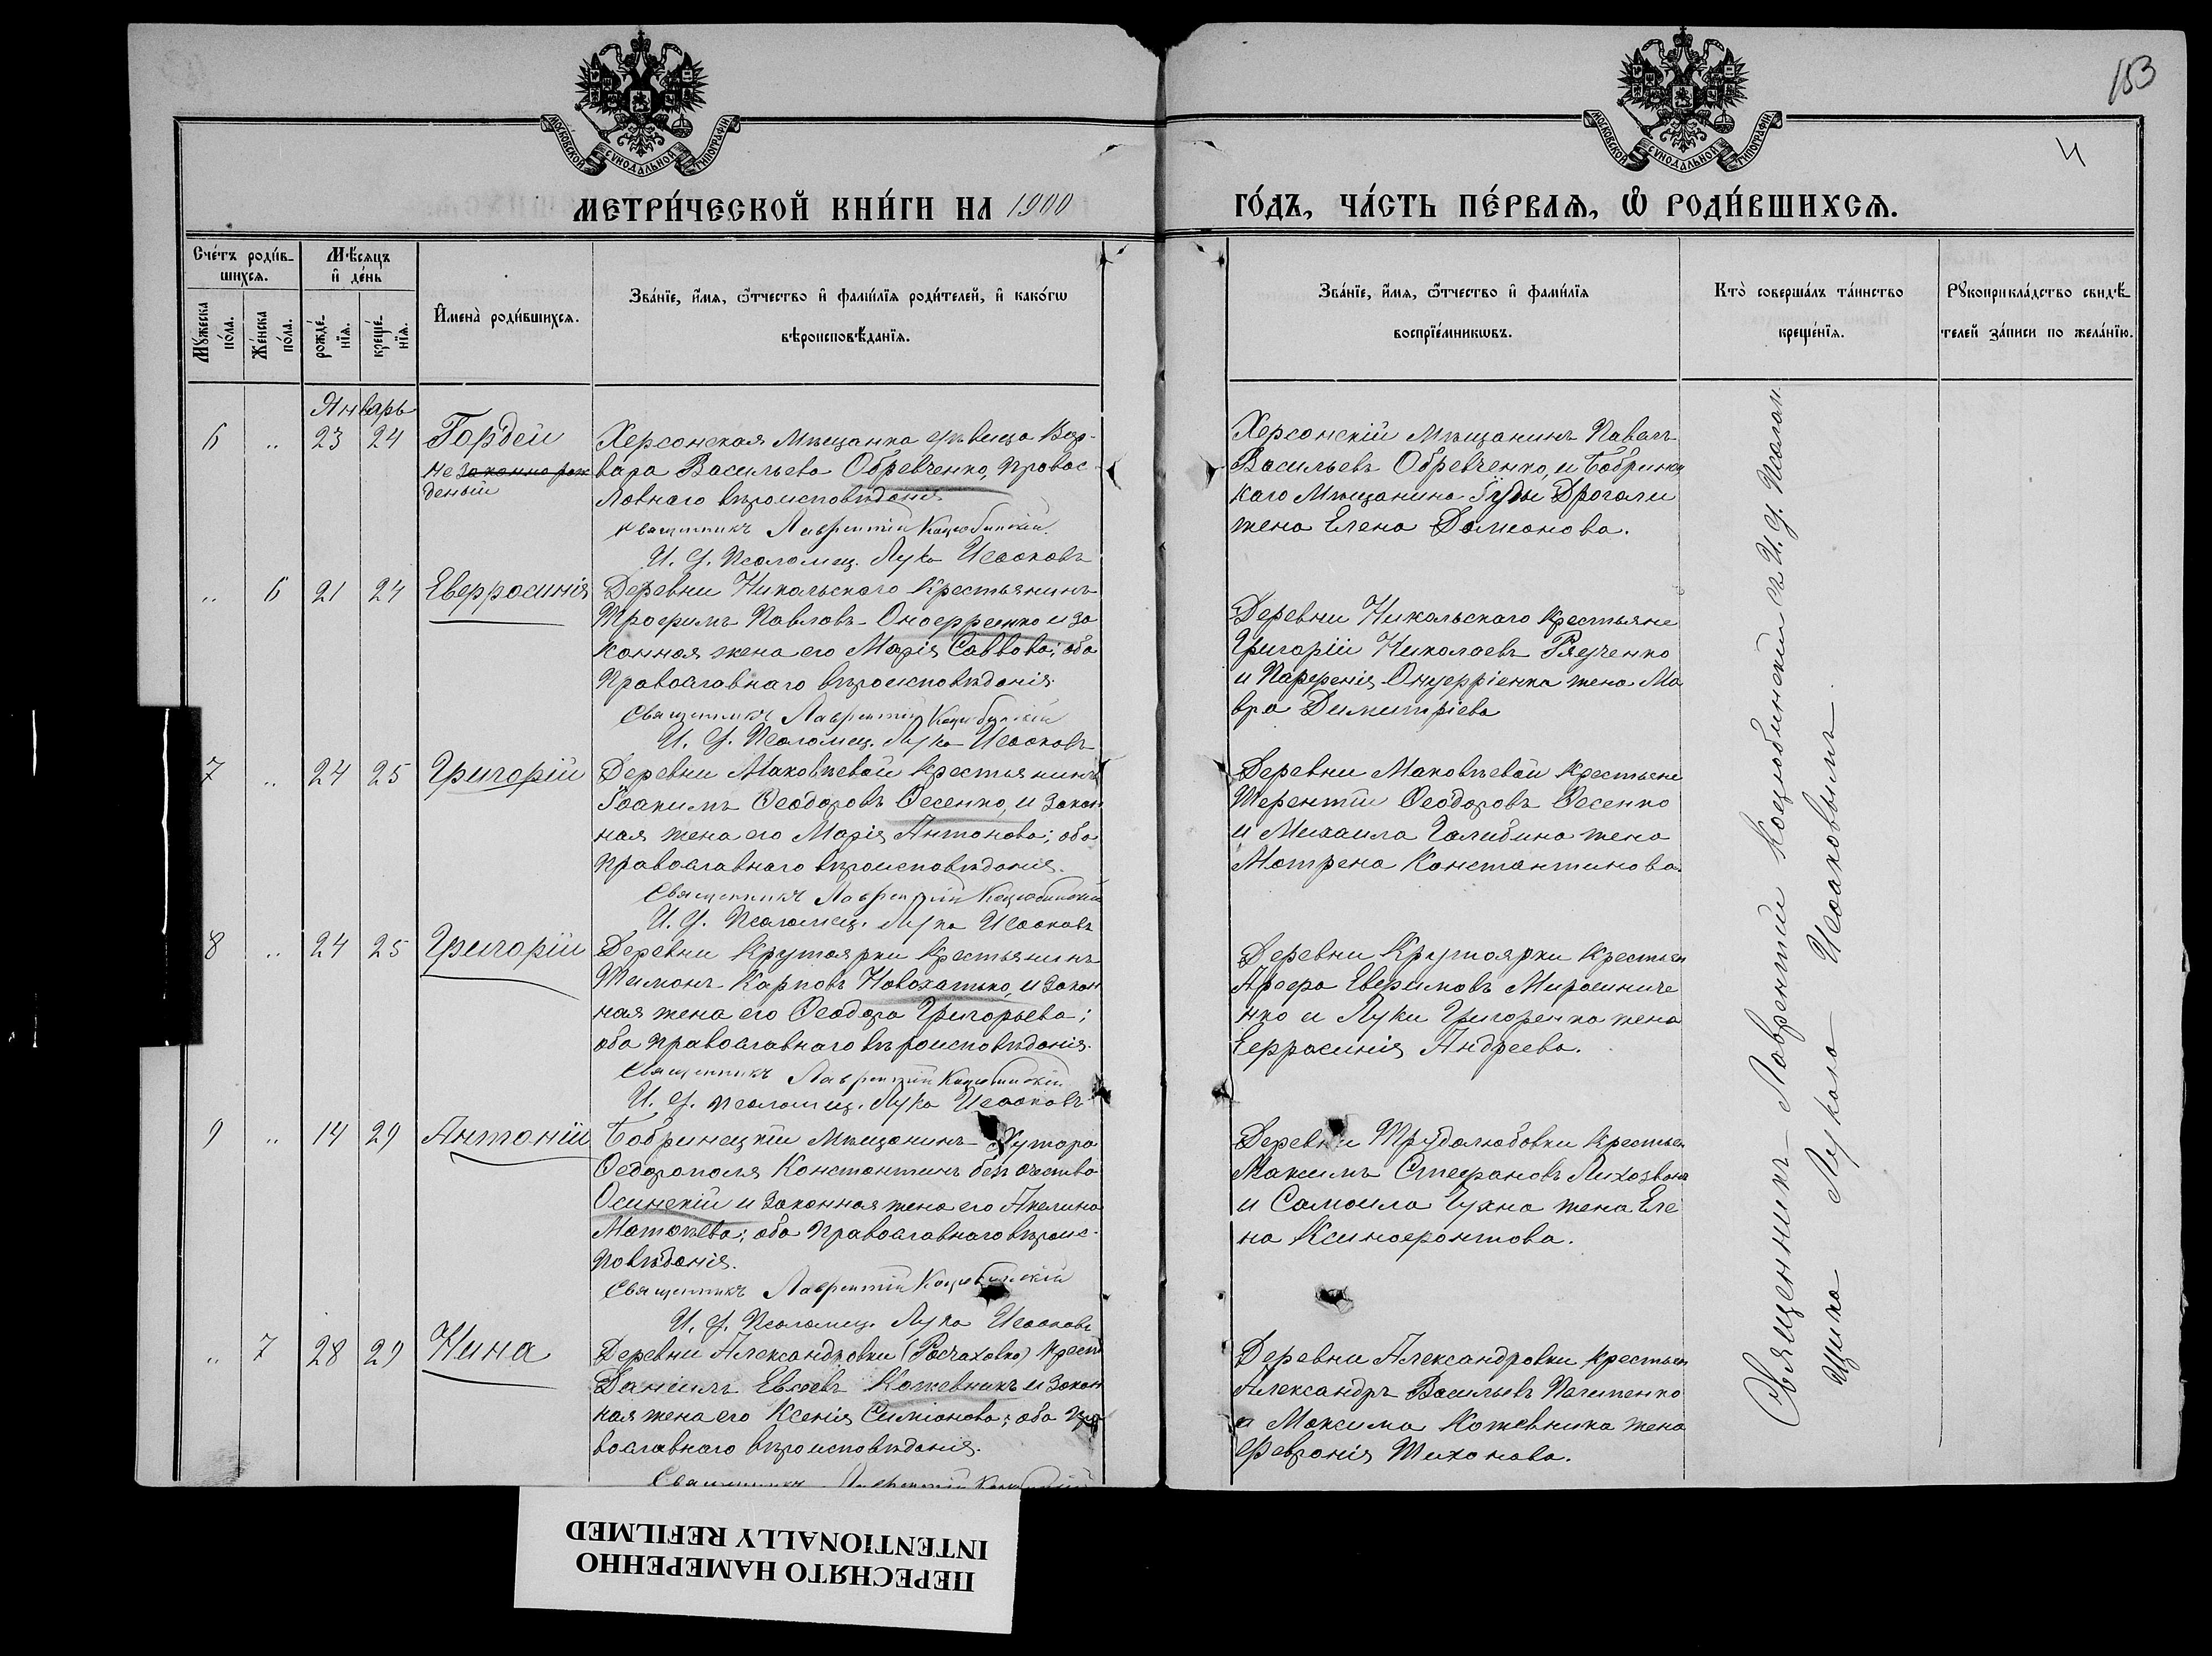 153
4
МОСКОВСКОЙ СѴНОДАЛЬНОЙ ТИПОГРАФІИ
МОСКОВСКОЙ СѴНОДАЛЬНОЙ ТИПОГРАФІИ
МЕТРИ́ЧЕСКОЙ КНИ́ГИ НА 1900
ГО́ДЪ, ЧА́СТЬ ПЕ́РВАѦ, Ѡ РОДИ́ВШИХСѦ.
Сче́тъ роди́в-
шихсѧ.
Мѣ́сѧцъ
и҆ де́нь
Мꙋ́жеска по́ла.
Же́нска по́ла.
рожде́-нїѧ.
креще́-нїѧ.
И҆мена̀ роди́вшихсѧ.
Зва́нїе, и҆́мѧ, ѻ҆́тчество и҆ фамі́лїѧ роди́телей, и҆ како́гѡ
вѣроисповѣ́данїѧ.
Зва́нїе, и҆́мѧ, ѻ҆́тчество и҆ фамі́лїѧ
воспрїе́мникѡвъ.
Кто̀ соверша́лъ та́инство
креще́нїѧ.
Рꙋкоприкла́дство свидѣ́-
телей за́писи по жела́нїю.
Январь
6 " 23 24 Гордей
не законно рож
деный
Херсонская Мѣщанка дѣвица Вар-
вара Васильева Обревченко, правос
лавнаго вѣроисповѣданія.
Священникъ Лаврентій Коцюбинскій
И. д. Псаломщ. Лука Исааковъ
Херсонскій Мѣщанинъ Павелъ
Васильевъ Обревченко, и Бобринец
каго Мѣщанина Іуды Дрогали
жена Елена
" 6 21 24 Евфросинія
Деревни Никольскаго Крестьянинъ
Трофимъ Павловъ Онофреенко и за
конная жена его Марія Саввова; оба
Православнаго вѣроисповѣданія.
Священникъ Лаврентій Коцюбинскій
И. д. Псаломщ. Лука Исааковъ
Деревни Никольскаго Крестьяне
Григорій Николаевъ
и Парфенія Онуфріенка жена Ма
вра Димитріева
7 " 24 25 Григорій
Деревни Маковѣевой Крестьянинъ
Іоакимъ Ѳеодоровъ Ѳесенко, и закон
ная жена его Марія Антонова; оба
Православнаго вѣроисповѣданія.
Священникъ Лаврентій Коцюбинскій
И. д. Псаломщ. Лука Исааковъ
Деревни Маковѣевой Крестьяне
Терентій Ѳеодоровъ Ѳесенко
и Михаила Голибина жена
Мотрена Константинова
8 " 24 25 Григорій
Деревни Крутоярки Крестьянинъ
Карповъ Новохатько, и закон
ная жена его Ѳеодора Григорьева;
оба православнаго вѣроисповѣданія.
Священникъ Лаврентій Коцюбинскій
И. д. Псаломщ. Лука Исааковъ
Деревни Крутоярки Крестьян
Евфимовъ Мирошниче
нко и Луки Григоренка жена
Андреева.
9 " 14 29 Антоній
Бобринецкій Мѣщанинъ Хутора
Ѳедорополя Константинъ безъ очества
Осинскій и законная жена его Акелина
Матвѣева; оба православнаго вѣроис-
повѣданія.
Священникъ Лаврентій Коцюбинскій
И. д. Псаломщ. Лука Исааковъ
Деревни Трудолюбовки Крестьян
Максимъ Стефановъ Лиходзвонъ
и Самоила Чухна жена Еле
на Ксинофонтова.
" 7 28 29 Нина
Деревни Александровки (Росчаховка) Крест
Даніилъ Кожевникъ и закон
ная жена его Ксенія Симіонова; оба пра
вославнаго вѣроисповѣданія.
Священникъ Лаврентій Коцюбинскій
Деревни Александровки Крестьян
Александръ Васильевъ
и Максима Кожевника жена
Февронія Тихонова.
Священникъ Лаврентій Коцюбинскій съ И. д. Псалом
щика Лукою Исааковымъ
ПЕРЕСНЯТО НАМЕРЕННО
INTENTIONALLY REFILMED